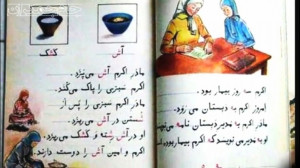 آش
کشک
مادر اکرم آش می‌پزد.
مادر اکرم سبزی را پاک می‌کند.
مادر اکرم سبزی را پس از
شستن در آش می‌ریزد.
او در آش رشته و کشک می‌ریزد.
اکرم و امین آش را دوست دارند.
اکرم سه روز بیمار بود.
امروز اکرم به دبستان می‌رود.
مادر اکرم به مدیر دبستان نامه می‌نویسد.
او به مدیر می‌نویسد که اکرم بیمار بود